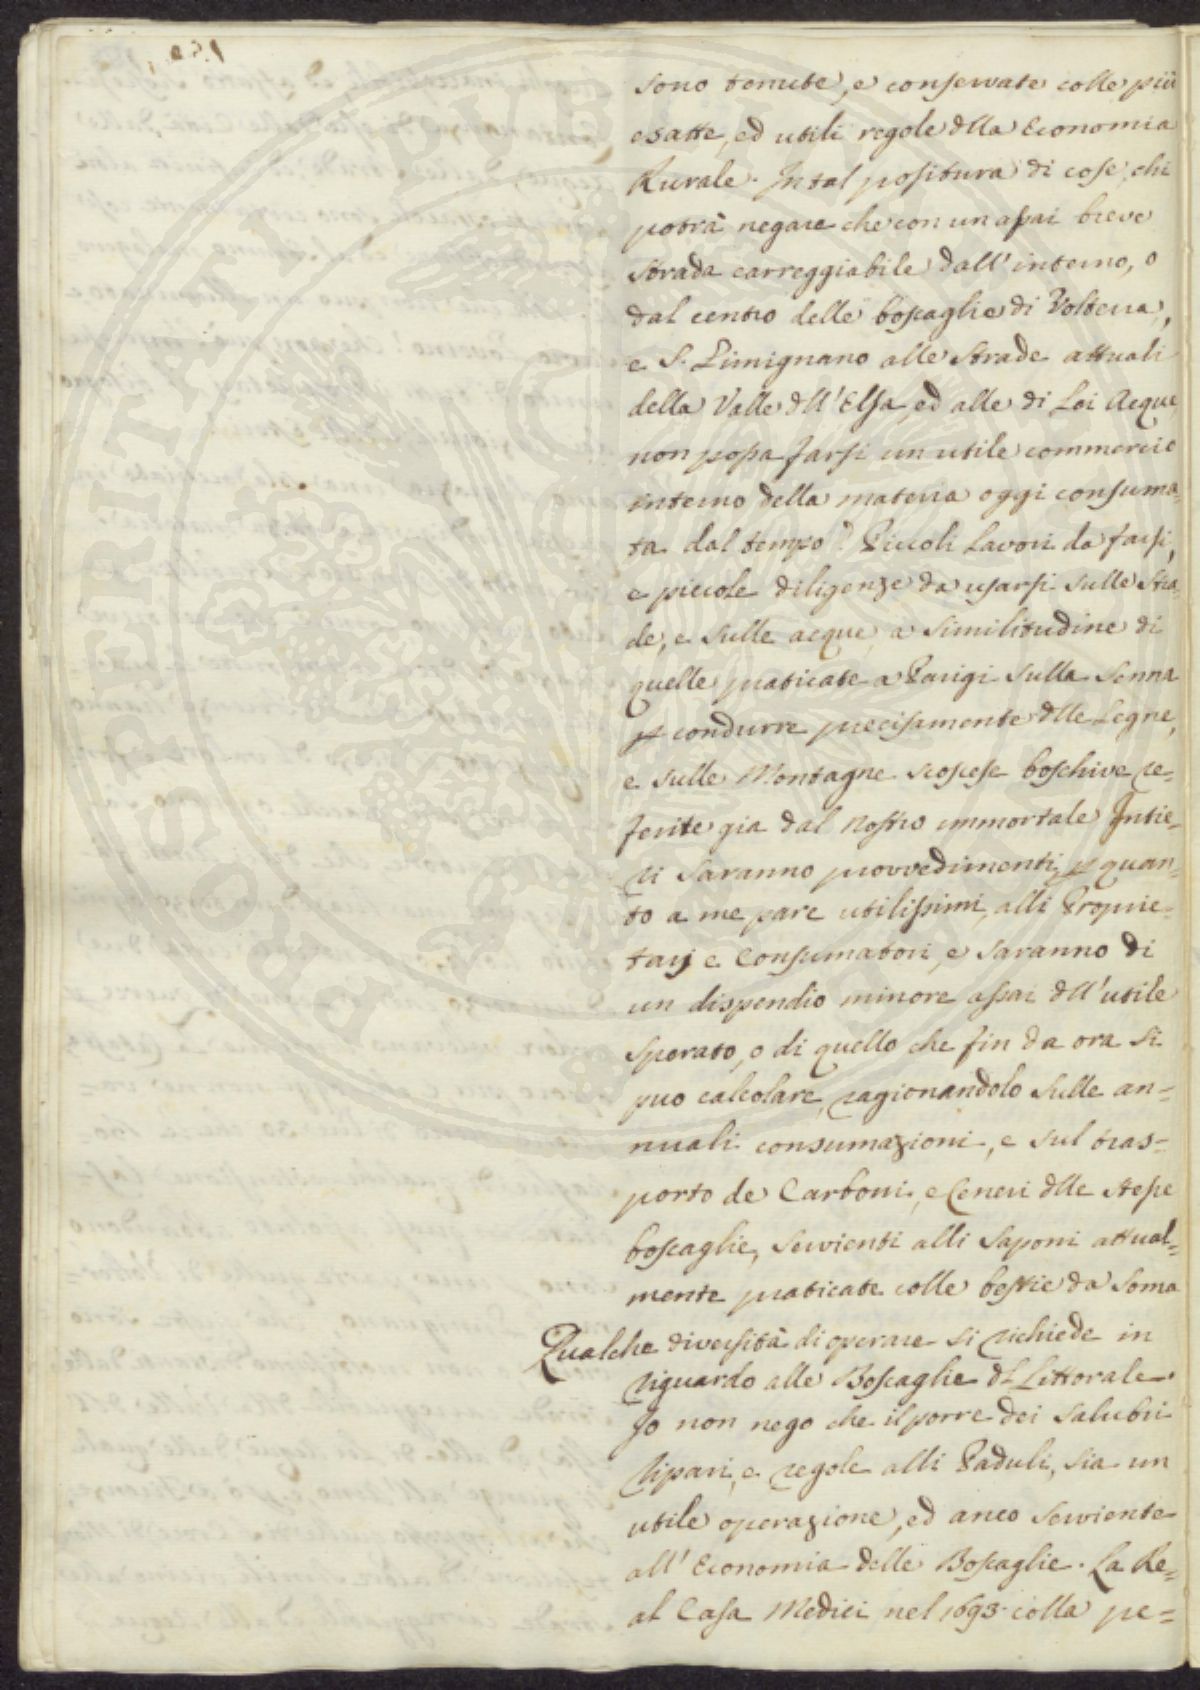 sono tenute, e conservate colle più
esatte, ed utili regole dlla Economia
Rurale. In tal positura di cose, chi
potrà negare che con un assai breve
strada carreggiabile dall' interno, o
dal centro delle boscaglie di Volterra,
e S. Gimignano alle strade attuali
della Valle dll' Elsa, ed alle di Lei Acque
non possa farsi un utile commercio
interno della materia oggi consuma=
ta dal tempo? Piccoli Lavori da farsi,
e piccole diligenze da usarsi sulle stra=
de, e sulle acque, a similitudine di
quelle praticate a Parigi sulla Senna
p condurre precisamente dlle Legne,
e sulle Montagne scoscese boschive re=
ferite gia dal nostro immortale Intie=
ri saranno provvedimenti, p quan=
to a me pare utilissimi, alli Proprie=
tarj e Consumatori, e saranno di
un dispendio minore assai dll' utile
sperato, o di quello che fin da ora si
puo calcolare, ragionandolo sulle an=
nuali consumazioni, e sul tras=
porto de Carboni, e Ceneri dlle stesse
boscaglie, servienti alli saponi attual=
mente praticate colle bestie da soma
Qualche diversità di operare si richiede in
riguardo alle Boscaglie dl Littorale.
Io non nego che il porre dei salubri
ripari, e regole alli Paduli, sia un
utile operazione, ed anco serviente
all' Economia delle Boscaglie. La Re=
al Casa Medici nel 1693. colla pe=
PROSPERITATI PUBLICAE